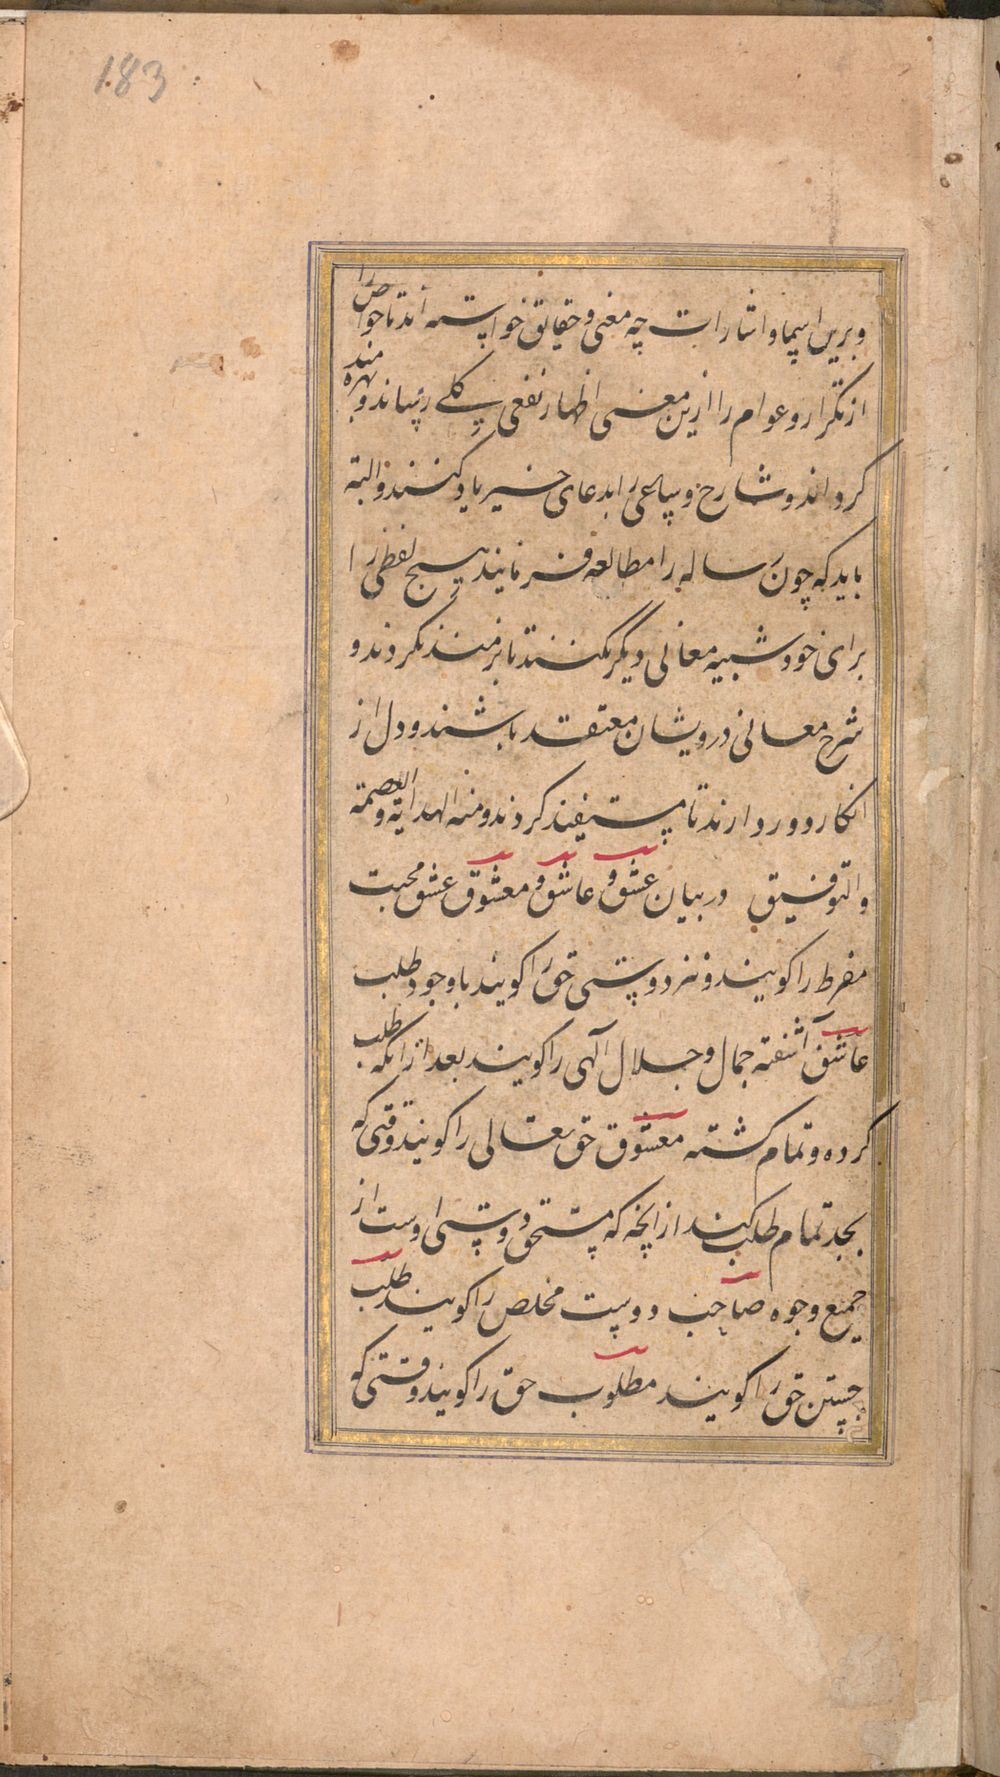 183
وبرین اسما و اشارات چه معنی و حقایق خواسته اند تا خواص را
از تکرار و عوام را ازین معنی اظهار نفعی کلی رساند و بهره مند
کرداند و شارح و ساعی را بدعای خیر یاد کنند و البته
باید که چون رساله را مطالعه فرمایند هیچ لفظی را
برای خود شبیه معانی دیگر نکنند تا بزمند نکردند و
شرح معانی درویشان معتقد باشند و دل از
انکار دور دارند تا مستفید کردند و منه الهدایه و العصمة
والتوفیق در بیان عشق و عاشق و معشوق عشق محبت
مفرط را کویند و نیز دوستی حق را کویند با وجود طلب
عاشق آشفته جمال و جلال آلهی را کویند بعد از انکه طلب
کرده و تمام کشته معشوق حق تعالی را کویند وقتی که
بجد تمام طلب کنند از انجه که مستحق دوستی اوست از
جمیع وجوه صاحب دوست مخلص را کویند طلب
جستن حق را کویند مطلوب حق را کویند وقتی کو